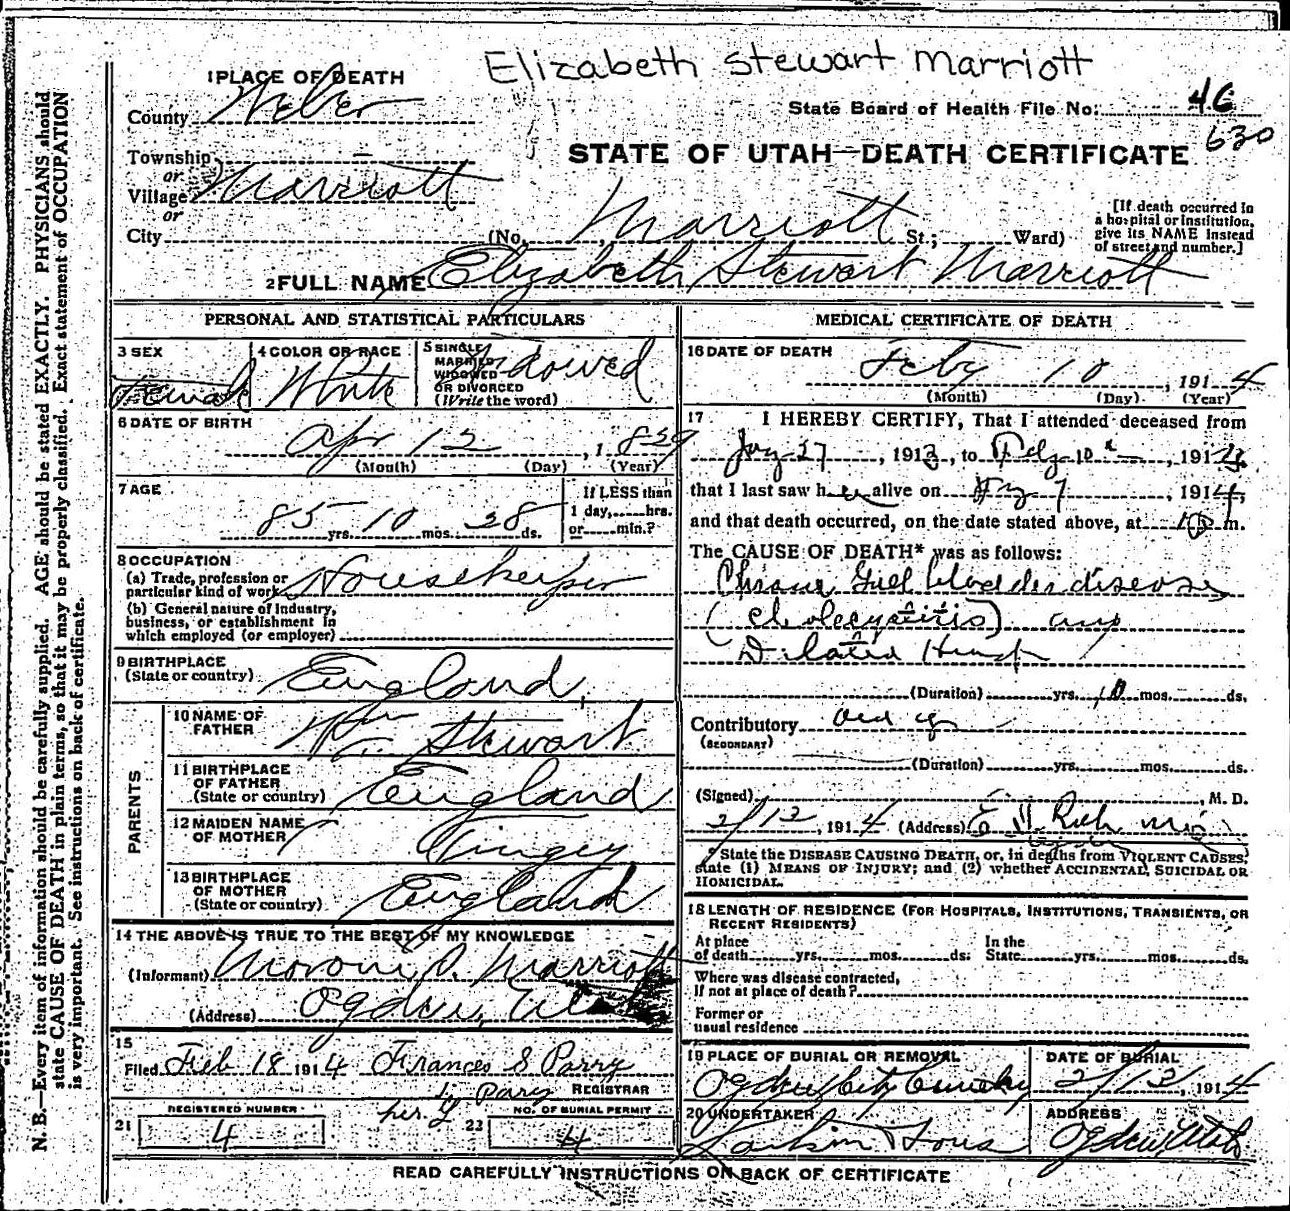 Elizabeth Stewart Marriott
1 PLACE OF DEATH
County Weber
State Board of Health File No. 46
630
STATE OF UTAH—DEATH CERTIFICATE
Township
or
Village Marriott
or
City (No. Marriott St.; Ward)
[If death occurred in a hospital or institution, give its NAME instead of street and number.]
2 FULL NAME Elizabeth Stewart Marriott
PERSONAL AND STATISTICAL PARTICULARS
3 SEX Female
4 COLOR OR RACE White
5 SINGLE MARRIED WIDOWED OR DIVORCED (Write the word) Widowed
6 DATE OF BIRTH
Apr 12, 1829
(Month) (Day) (Year)
7 AGE
85 yrs. 10 mos. 28 ds.
If LESS than 1 day, hrs. or min.?
8 OCCUPATION
(a) Trade, profession or particular kind of work Housekeeper
(b) General nature of industry, business, or establishment in which employed (or employer)
9 BIRTHPLACE (State or country) England
PARENTS
10 NAME OF FATHER Wm Stewart
11 BIRTHPLACE OF FATHER (State or country) England
12 MAIDEN NAME OF MOTHER Tingey
13 BIRTHPLACE OF MOTHER (State or country) England
14 THE ABOVE IS TRUE TO THE BEST OF MY KNOWLEDGE
(Informant) Moroni S. Marriott
(Address) Ogden, Utah
15
Filed Feb 18 1914 Frances S Parry
REGISTRAR
per
21 REGISTERED NUMBER 4
22 NO. OF BURIAL PERMIT 4
MEDICAL CERTIFICATE OF DEATH
16 DATE OF DEATH
Feby 10, 1914
(Month) (Day) (Year)
17 I HEREBY CERTIFY, That I attended deceased from
27, 1913, to Feby 10, 1914
that I last saw her alive on 7, 1914,
and that death occurred, on the date stated above, at m.
The CAUSE OF DEATH* was as follows:
Chronic Gall bladder disease
(Cholecystitis) and
Dilated Heart
(Duration) yrs. 10 mos. ds.
Contributory Old age
(SECONDARY)
(Duration) yrs. mos. ds.
(Signed) , M. D.
2/12, 1914 (Address)
*State the DISEASE CAUSING DEATH, or, in deaths from VIOLENT CAUSES, state (1) MEANS OF INJURY; and (2) whether ACCIDENTAL, SUICIDAL OR HOMICIDAL.
18 LENGTH OF RESIDENCE (FOR HOSPITALS, INSTITUTIONS, TRANSIENTS, OR RECENT RESIDENTS)
At place of death yrs. mos. ds. In the State yrs. mos. ds.
Where was disease contracted, If not at place of death?
Former or usual residence
19 PLACE OF BURIAL OR REMOVAL Ogden City Cemetery
DATE OF BURIAL 2/13, 1914
20 UNDERTAKER Larkin & Sons
ADDRESS Ogden, Utah
READ CAREFULLY INSTRUCTIONS ON BACK OF CERTIFICATE
N. B.—Every item of information should be carefully supplied. AGE should be stated EXACTLY. PHYSICIANS should
state CAUSE OF DEATH in plain terms, so that it may be properly classified. Exact statement of OCCUPATION
is very important. See instructions on back of certificate.